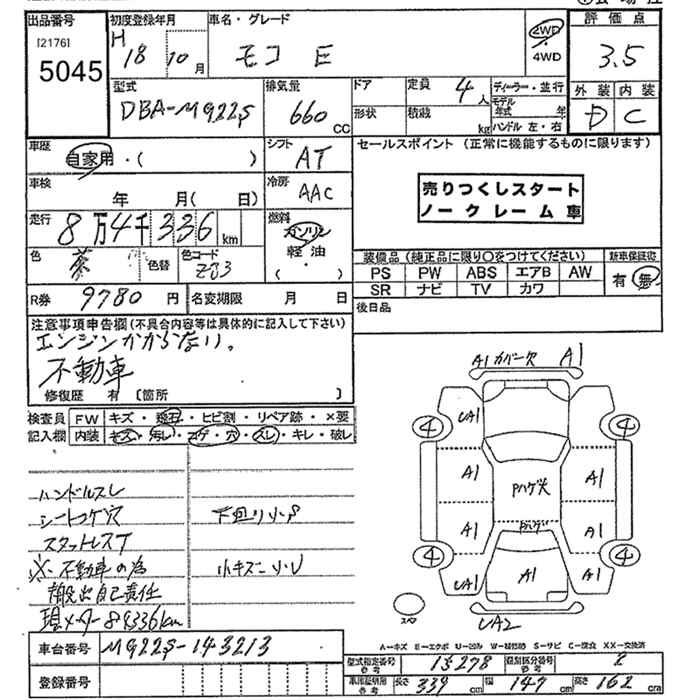 出品番号 初度登録年月 車名・グレード 評価点
[2176] 5045 H18 10月 モコ E 2WD 4WD 3.5
型式 排気量 ドア 定員 4人 ディーラー・並行 外装 内装
DBA-MG22S 660CC 形状 積載 kg モデル年式 年 ハンドル 左・右 D C
車歴 自家用・( ) シフト AT セールスポイント (正常に機能するものに限ります)
車検 年 月( 日) 冷房 AAC
売りつくしスタート
ノークレーム車
走行 8万4千336km 燃料 ガソリン 軽油 ( ・ )
色 茶 色替 色コード ZJ3
装備品 (純正品に限り○をつけてください) 新車保証書
PS PW ABS エアB AW 有・無
SR ナビ TV カワ
R券 9780円 名変期限 月 日 後日品
注意事項申告欄(不具合内容等は具体的に記入して下さい)
エンジンかからない。
不動車
修復歴 有 〔箇所 〕
検査員 FW キズ・飛石・ヒビ割・リペア跡・×要
記入欄 内装 キズ・汚レ・コゲ・穴・スレ・キレ・破レ
A1カバー欠 A1
UA1
4 4
A1 Pハゲ穴 A1
A1 Pハゲ A1
4 4
UA1 A1 A1
スペア UA2
ハンドルスレ
シートコゲ穴 下廻りサビ
スタットレスT
※・不動車の為 小キズ
搬出自己責任
現メーター84336km
車台番号 MG22S-143213
A-キズ E-エクボ U-凹み W-補修跡 S-サビ C-腐食 XX-交換済
型式指定番号 15278 類別区分番号 2
登録番号 車庫証明用参考 長さ 339cm 幅 147cm 高さ 162cm